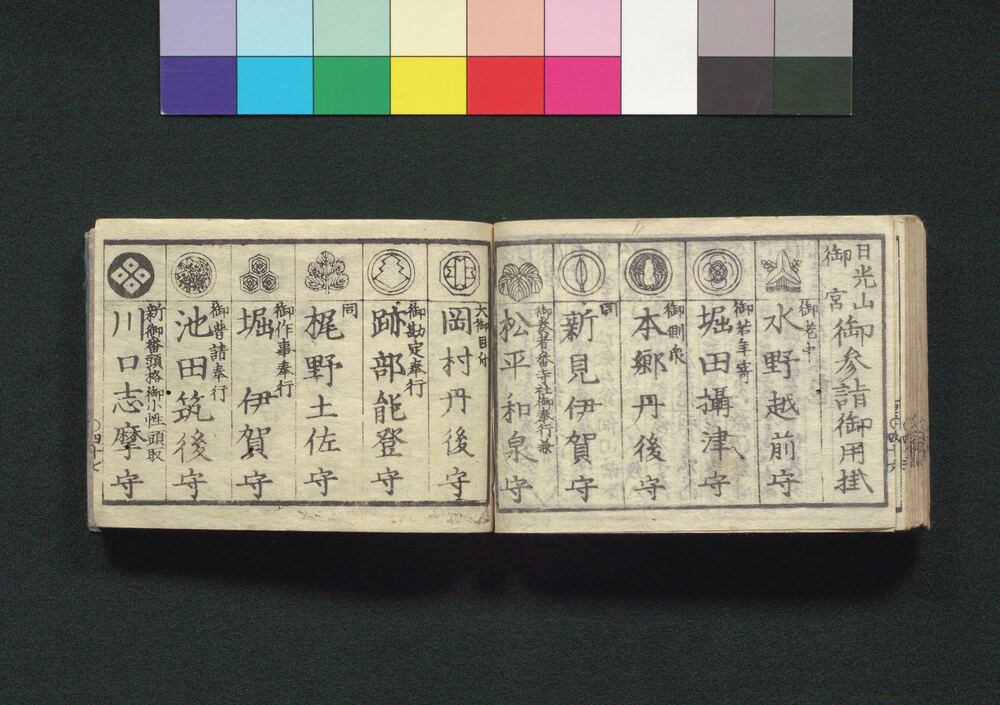 日光山
御宮御参詣御用掛
御老中
水野越前守
御若年寄
堀田攝津守
御側衆
本郷丹後守
同
新見伊賀守
御奏者番寺社御奉行兼
松平和泉守
大御目付
岡村丹後守
御勘定奉行
跡部能登守
同
梶野土佐守
御作事奉行
堀伊賀守
御普請奉行
池田筑後守
新御番頭格御小性頭取
川口志摩守
〇四十七